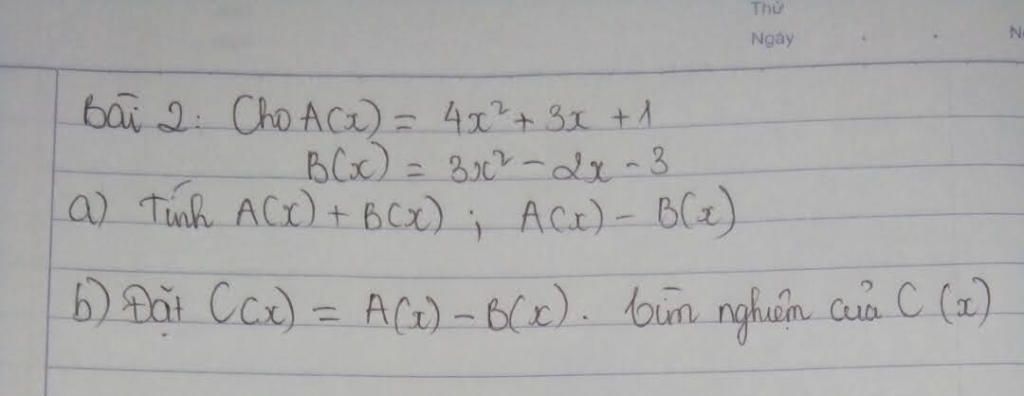 Thứ
Ngày
Bài 2: Cho A(x) = 4x² + 3x + 1
B(x) = 3x² - 2x - 3
a) Tính A(x) + B(x) ; A(x) - B(x)
b) Đặt C(x) = A(x) - B(x). tìm nghiệm của C(x)